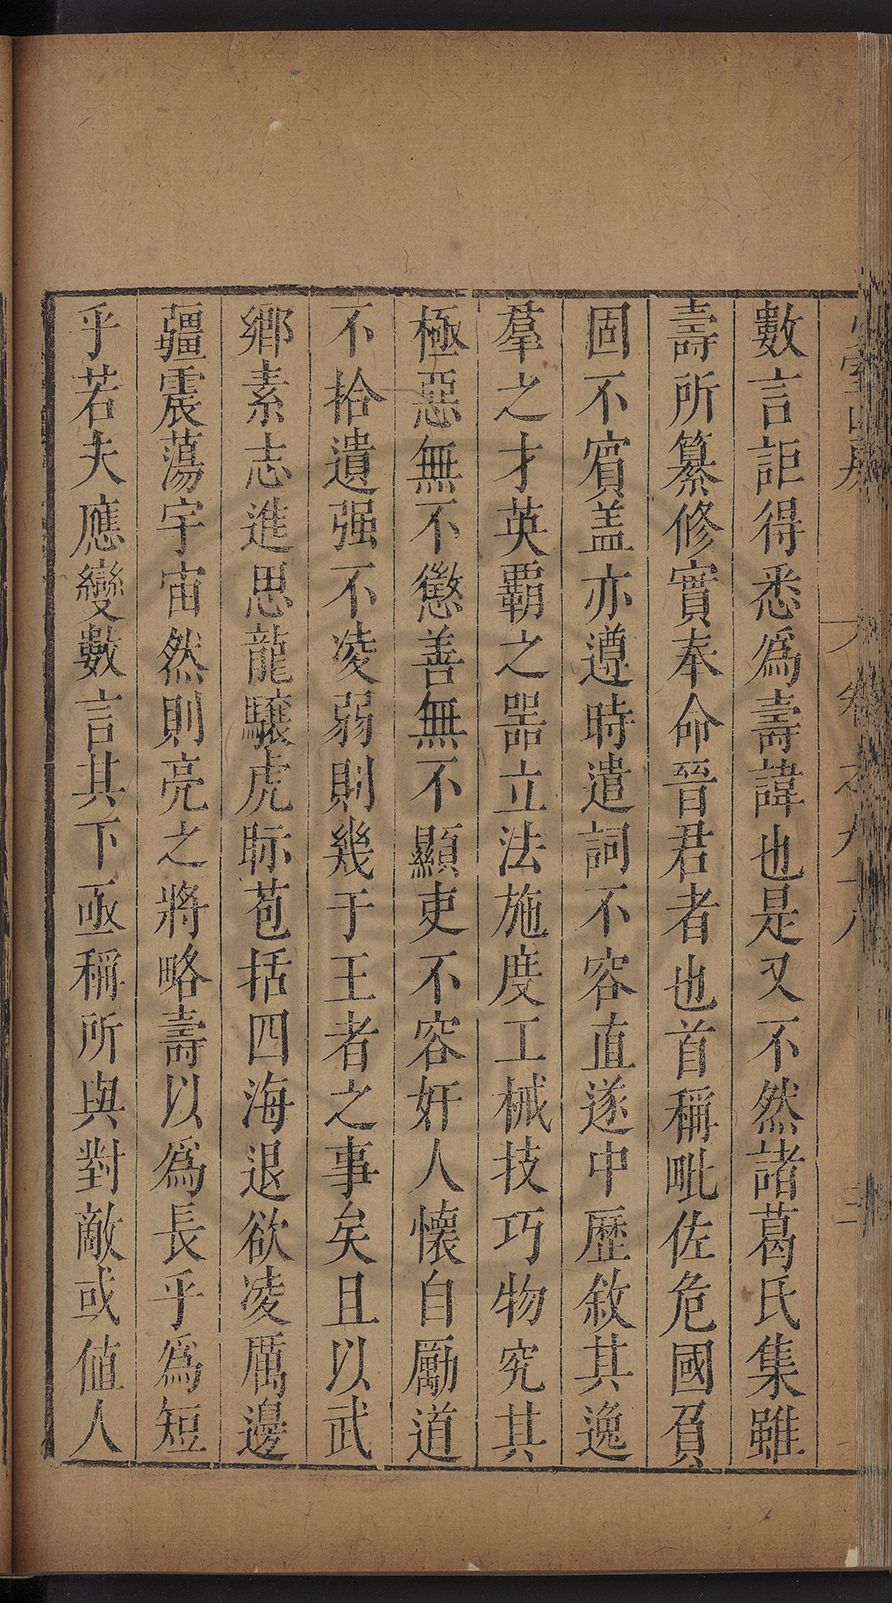 數言詎得悉爲壽諱也是又不然諸葛氏集雖
壽所纂修實奉命晉君者也首稱毗佐危國負
固不賓盖亦遵時遣詞不容直遂中歷敘其逸
羣之才英覇之噐立法施度工械技巧物究其
極惡無不懲善無不顯吏不容奸人懷自勵道
不拾遺强不凌弱則幾于王者之事矣且以武
鄉素志進思龍驤虎眎苞括四海退欲凌厲邊
疆震蕩宇宙然則亮之將略壽以爲長乎爲短
乎若夫應變數言其下亟稱所與對敵或値人